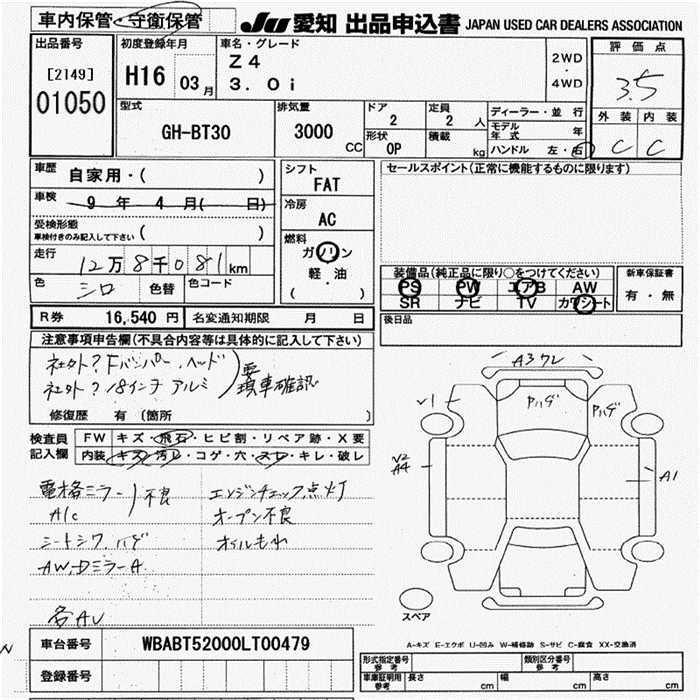 車内保管・守衛保管
JU 愛知 出品申込書 JAPAN USED CAR DEALERS ASSOCIATION
出品番号
[2149]
01050
初度登録年月
H16 03月
車名・グレード
Z4
3.0i
2WD
・
4WD
評価点
3.5
外装 内装
C C
型式
GH-BT30
排気量
3000
CC
ドア
2
定員
2 人
形状
OP
積載
kg
ディーラー・並行
モデル年式 年
ハンドル 左・右
車歴
自家用・( )
車検
9年 4月( 日)
受検形態
車検付きのみ記入して下さい ( )
走行
12万8千081km
色
シロ
色替
色コード
シフト
FAT
冷房
AC
燃料
ガソリン
軽・油
( )
セールスポイント(正常に機能するものに限ります)
装備品(純正品に限り○をつけてください)
PS PW エアB AW
SR ナビ TV カワシート
新車保証書
有・無
R券 16,540 円
名変通知期限 月 日
後日品
注意事項申告欄(不具合内容等は具体的に記入して下さい)
社外?Fバンパー、ヘッド
社外?18インチアルミ
要現車確認
修復歴 有(箇所 )
検査員記入欄
FW キズ・飛石・ヒビ割・リペア跡・X要
内装 キズ・汚レ・コゲ・穴・スレ・キレ・破レ
電格ミラー
A/C
不良
シートシワ、ハゲ
AW、DミラーA
各AU
エンジンチェック点灯
オープン不良
オイルもれ
A3ワレ
Pハゲ
Pハゲ
V1
V2
A4
A1
スペア
A-キズ E-エクボ U-凹み W-補修跡 S-サビ C-腐食 XX-交換済
車台番号
WBABT52000LT00479
登録番号
形式指定番号
参考
類別区分番号
参考
車庫証明用
参考
長さ cm
幅 cm
高さ cm